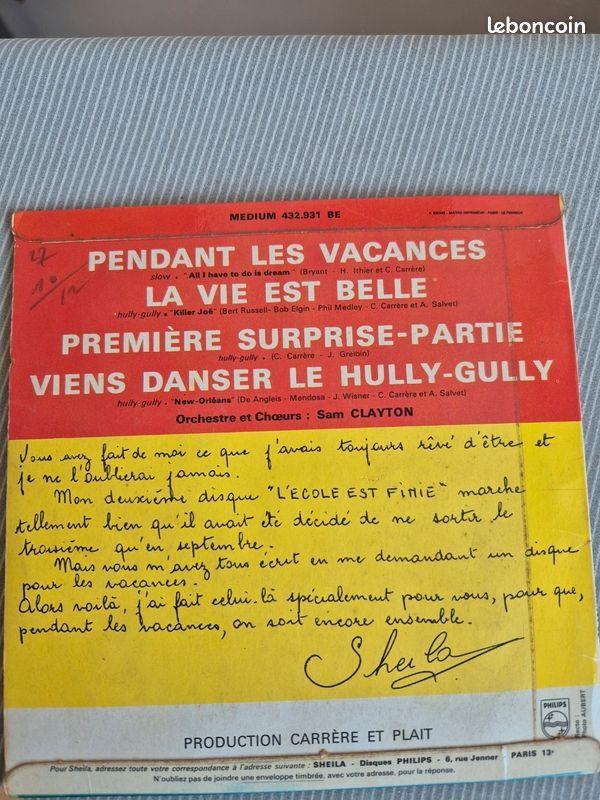 leboncoin
MEDIUM 432.931 BE
PENDANT LES VACANCES
slow • "All I have to do is dream" (Bryant - H. Ithier et C. Carrère)
LA VIE EST BELLE
hully-gully • "Killer Joë" (Bert Russell- Bob Elgin - Phil Medley - C. Carrère et A. Salvet)
PREMIÈRE SURPRISE-PARTIE
hully-gully • (C. Carrère - J. Grelbin)
VIENS DANSER LE HULLY-GULLY
hully-gully • "New-Orléans" (De Angleis - Mendosa - J. Wisner - C. Carrère et A. Salvet)
Orchestre et Chœurs : Sam CLAYTON
Vous avez fait de moi ce que j'avais toujours rêvé d'être et
je ne l'oublierai jamais.
Mon deuxième disque "L'ECOLE EST FINIE" marche
tellement bien qu'il avait été décidé de ne sortir le
troisième qu'en septembre.
Mais vous m'avez tous écrit en me demandant un disque
pour les vacances.
Alors voilà, j'ai fait celui-là spécialement pour vous, pour que,
pendant les vacances, on soit encore ensemble.
Sheila
PHILIPS
Photo AUBERT
PRODUCTION CARRÈRE ET PLAIT
Pour Sheila, adressez toute votre correspondance à l'adresse suivante : SHEILA - Disques PHILIPS - 6, rue Jenner - PARIS 13e
N'oubliez pas de joindre une enveloppe timbrée, avec votre adresse, pour la réponse.